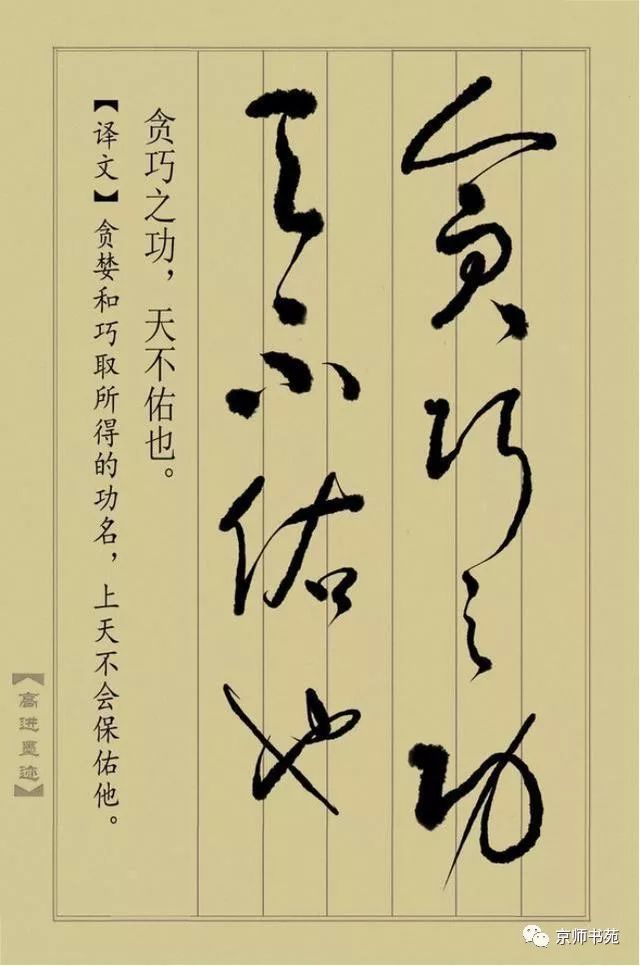 贪巧之功
天不佑也
贪巧之功，天不佑也。
【译文】贪婪和巧取所得的功名，上天不会保佑他。
【高进墨迹】
京师书苑